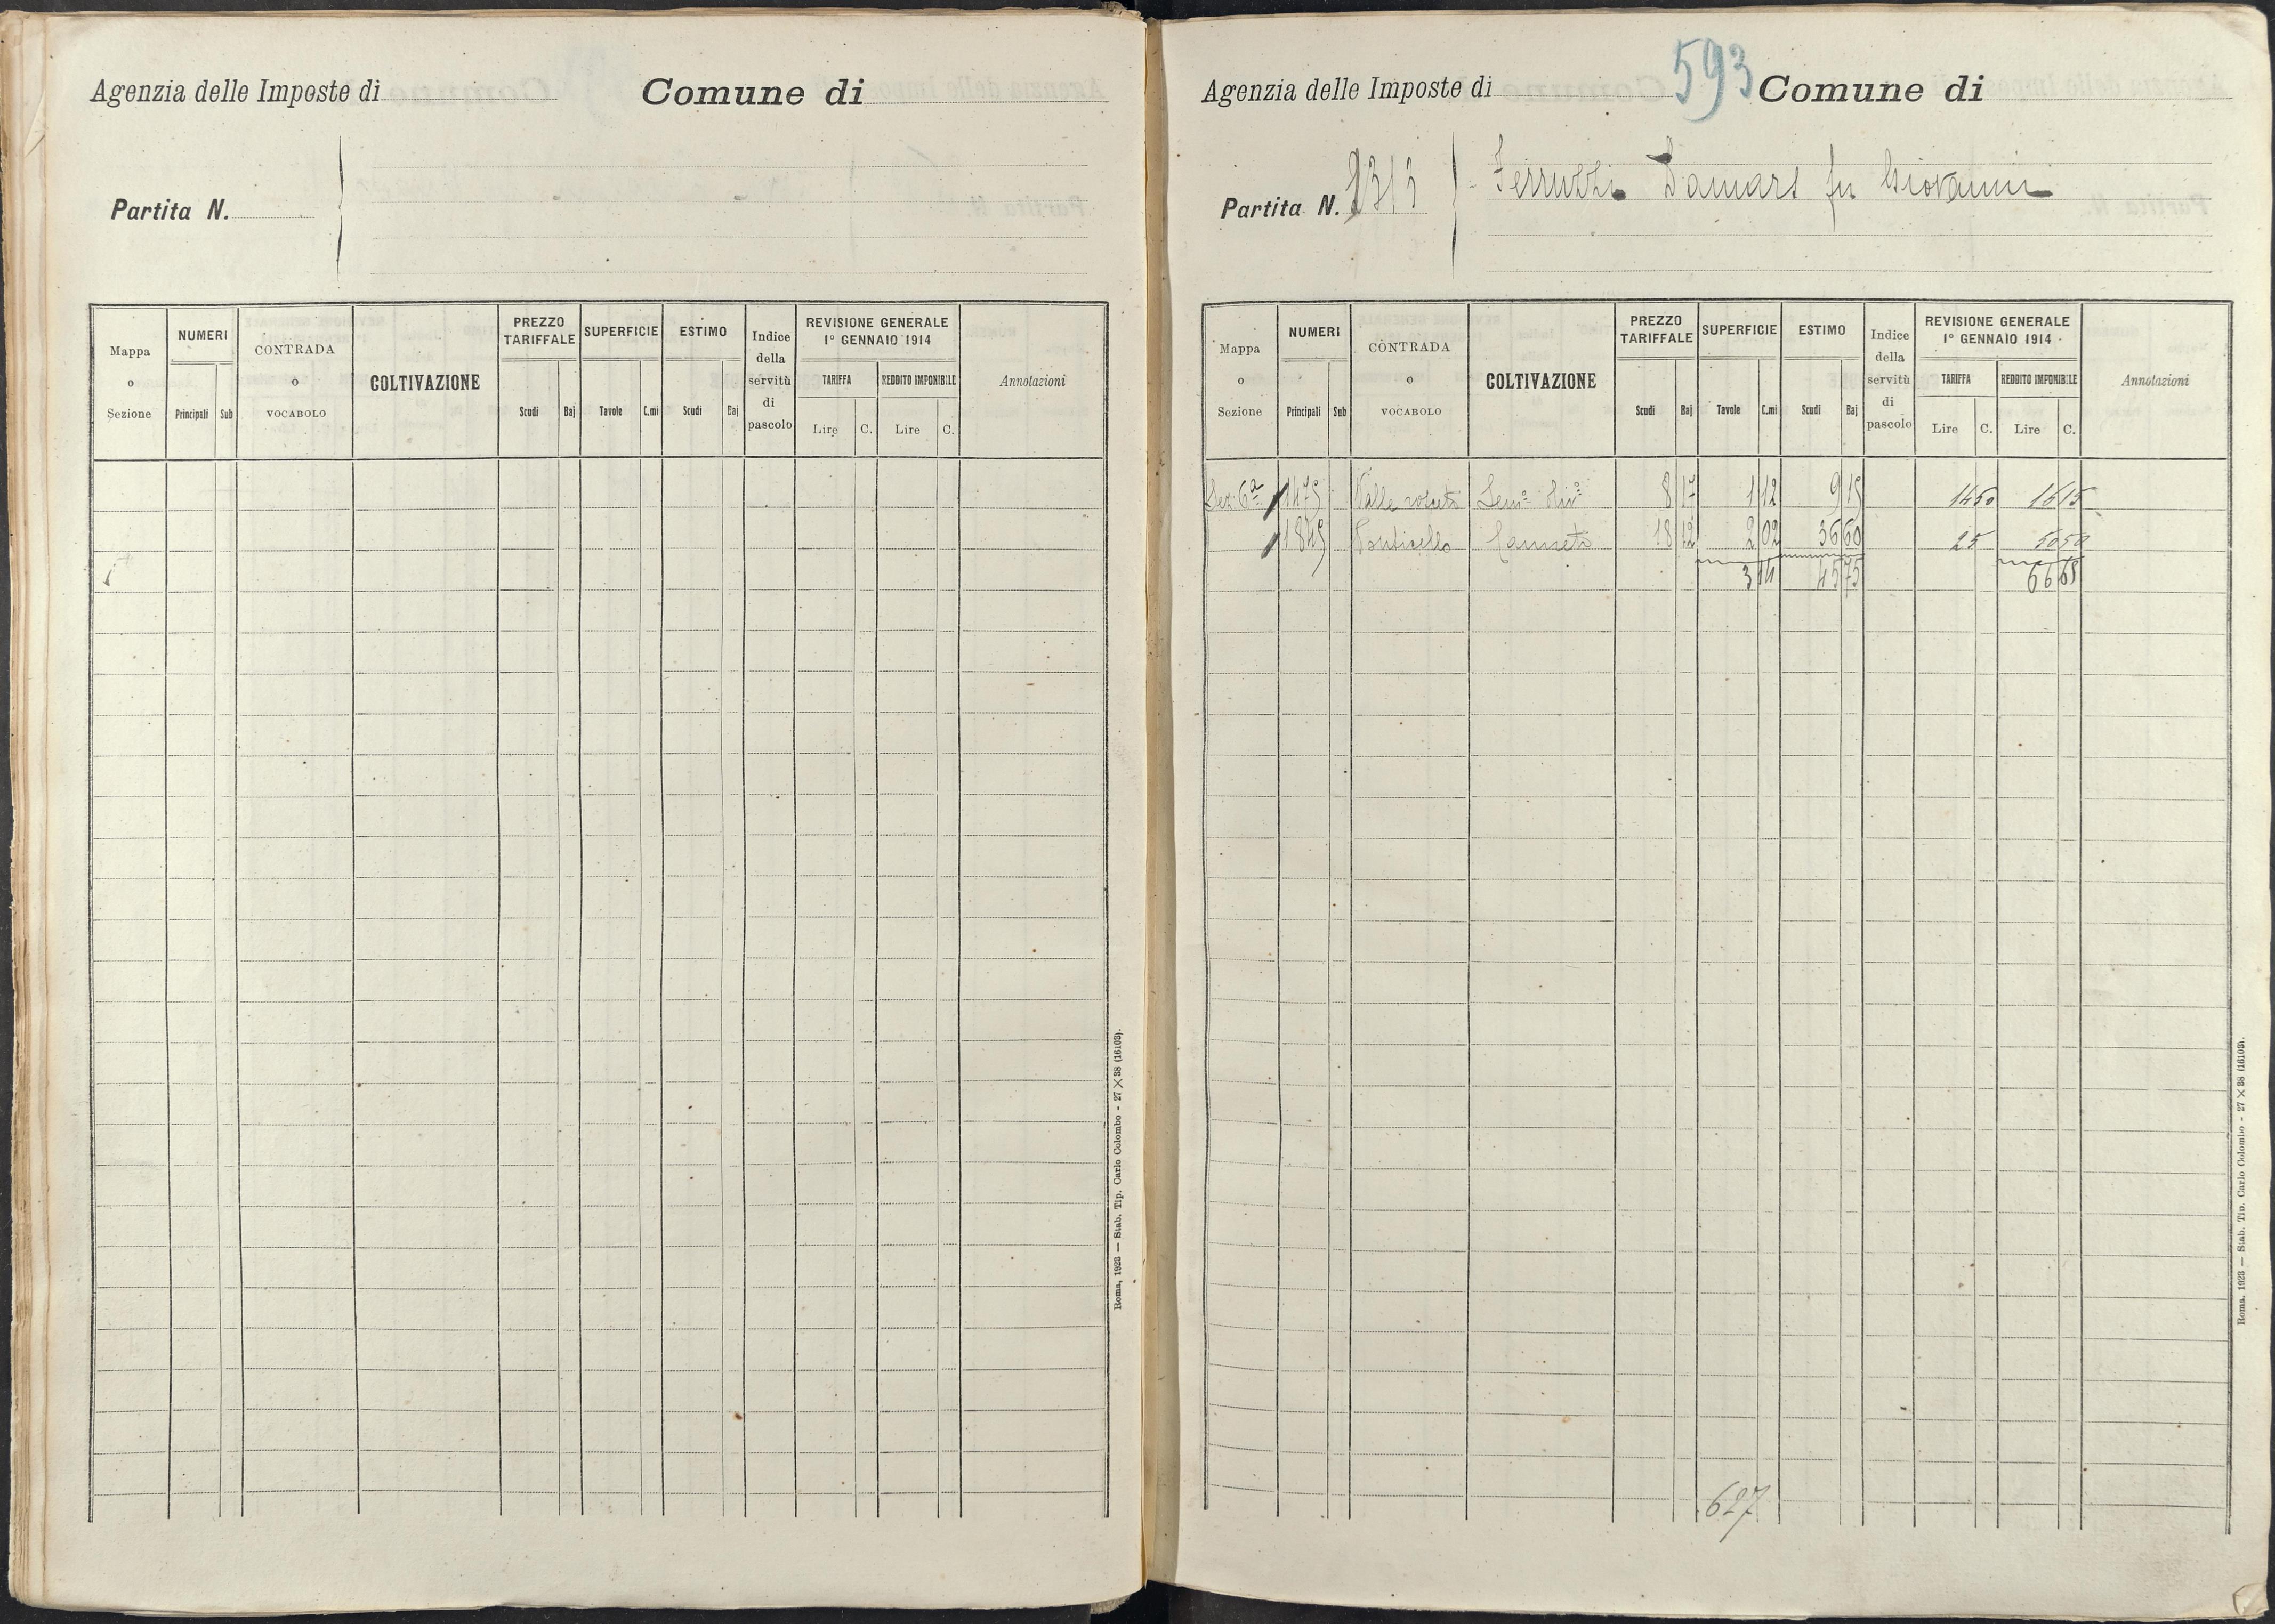 Agenzia delle Imposte di Comune di
Partita N.
Mappa o Sezione NUMERI Principali Sub CONTRADA o VOCABOLO COLTIVAZIONE PREZZO TARIFFALE Scudi Baj SUPERFICIE Tavole C.mi ESTIMO Scudi Baj Indice della servitù di pascolo REVISIONE GENERALE 1° GENNAIO 1914 TARIFFA Lire C. REDDITO IMPONIBILE Lire C. Annotazioni
Roma, 1923 — Stab. Tip. Carlo Colombo - 27 × 38 (16103).
593
Agenzia delle Imposte di Comune di
Partita N. 2313 Ferruzzi Damars fu Giovanni
Mappa o Sezione NUMERI Principali Sub CONTRADA o VOCABOLO COLTIVAZIONE PREZZO TARIFFALE Scudi Baj SUPERFICIE Tavole C.mi ESTIMO Scudi Baj Indice della servitù di pascolo REVISIONE GENERALE 1° GENNAIO 1914 TARIFFA Lire C. REDDITO IMPONIBILE Lire C. Annotazioni
Sez. 6a 1475 Valle Semo Livo 8 17 1 12 9 15 14 50 16 15
1849 Ponticello Canneto 18 12 2 02 36 60 25 50 50
3 14 45 75 66 65
627
Roma, 1923 — Stab. Tip. Carlo Colombo - 27 × 38 (16103).